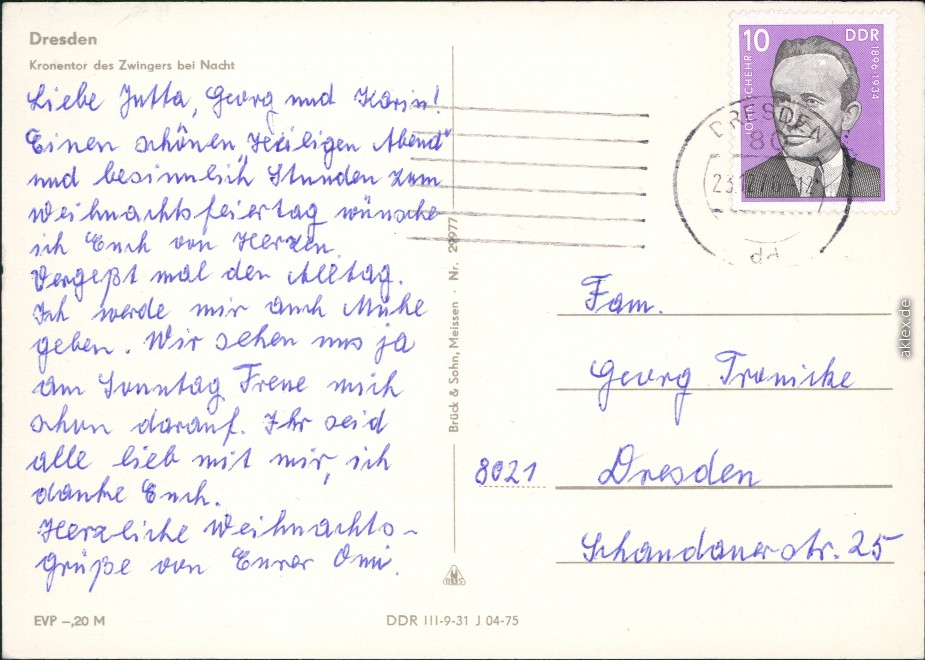 Dresden
Kronentor des Zwingers bei Nacht
Liebe Jutta, Georg und Karin!
Einen schönen „Heiligen Abend“
und besinnlich Stunden zum
Weihnachtsfeiertag wünsche
ich Euch von Herzen.
Vergeßt mal den Alltag.
Ich werde mir auch Mühe
geben. Wir sehen uns ja
am Sonntag. Freue mich
schon darauf. Ihr seid
alle lieb mit mir, ich
danke Euch.
Herzliche Weihnachts-
grüße von Eurer Omi.
EVP –,20 M
DDR III-9-31 J 04-75
Brück & Sohn, Meissen · Nr. 29977
10 DDR
JOHN SCHEHR
1896-1934
DRESDEN
80
23.12.76-12
dd
Fam.
Georg Tronicke
8021 Dresden
Schandauerstr. 25
aklex.de